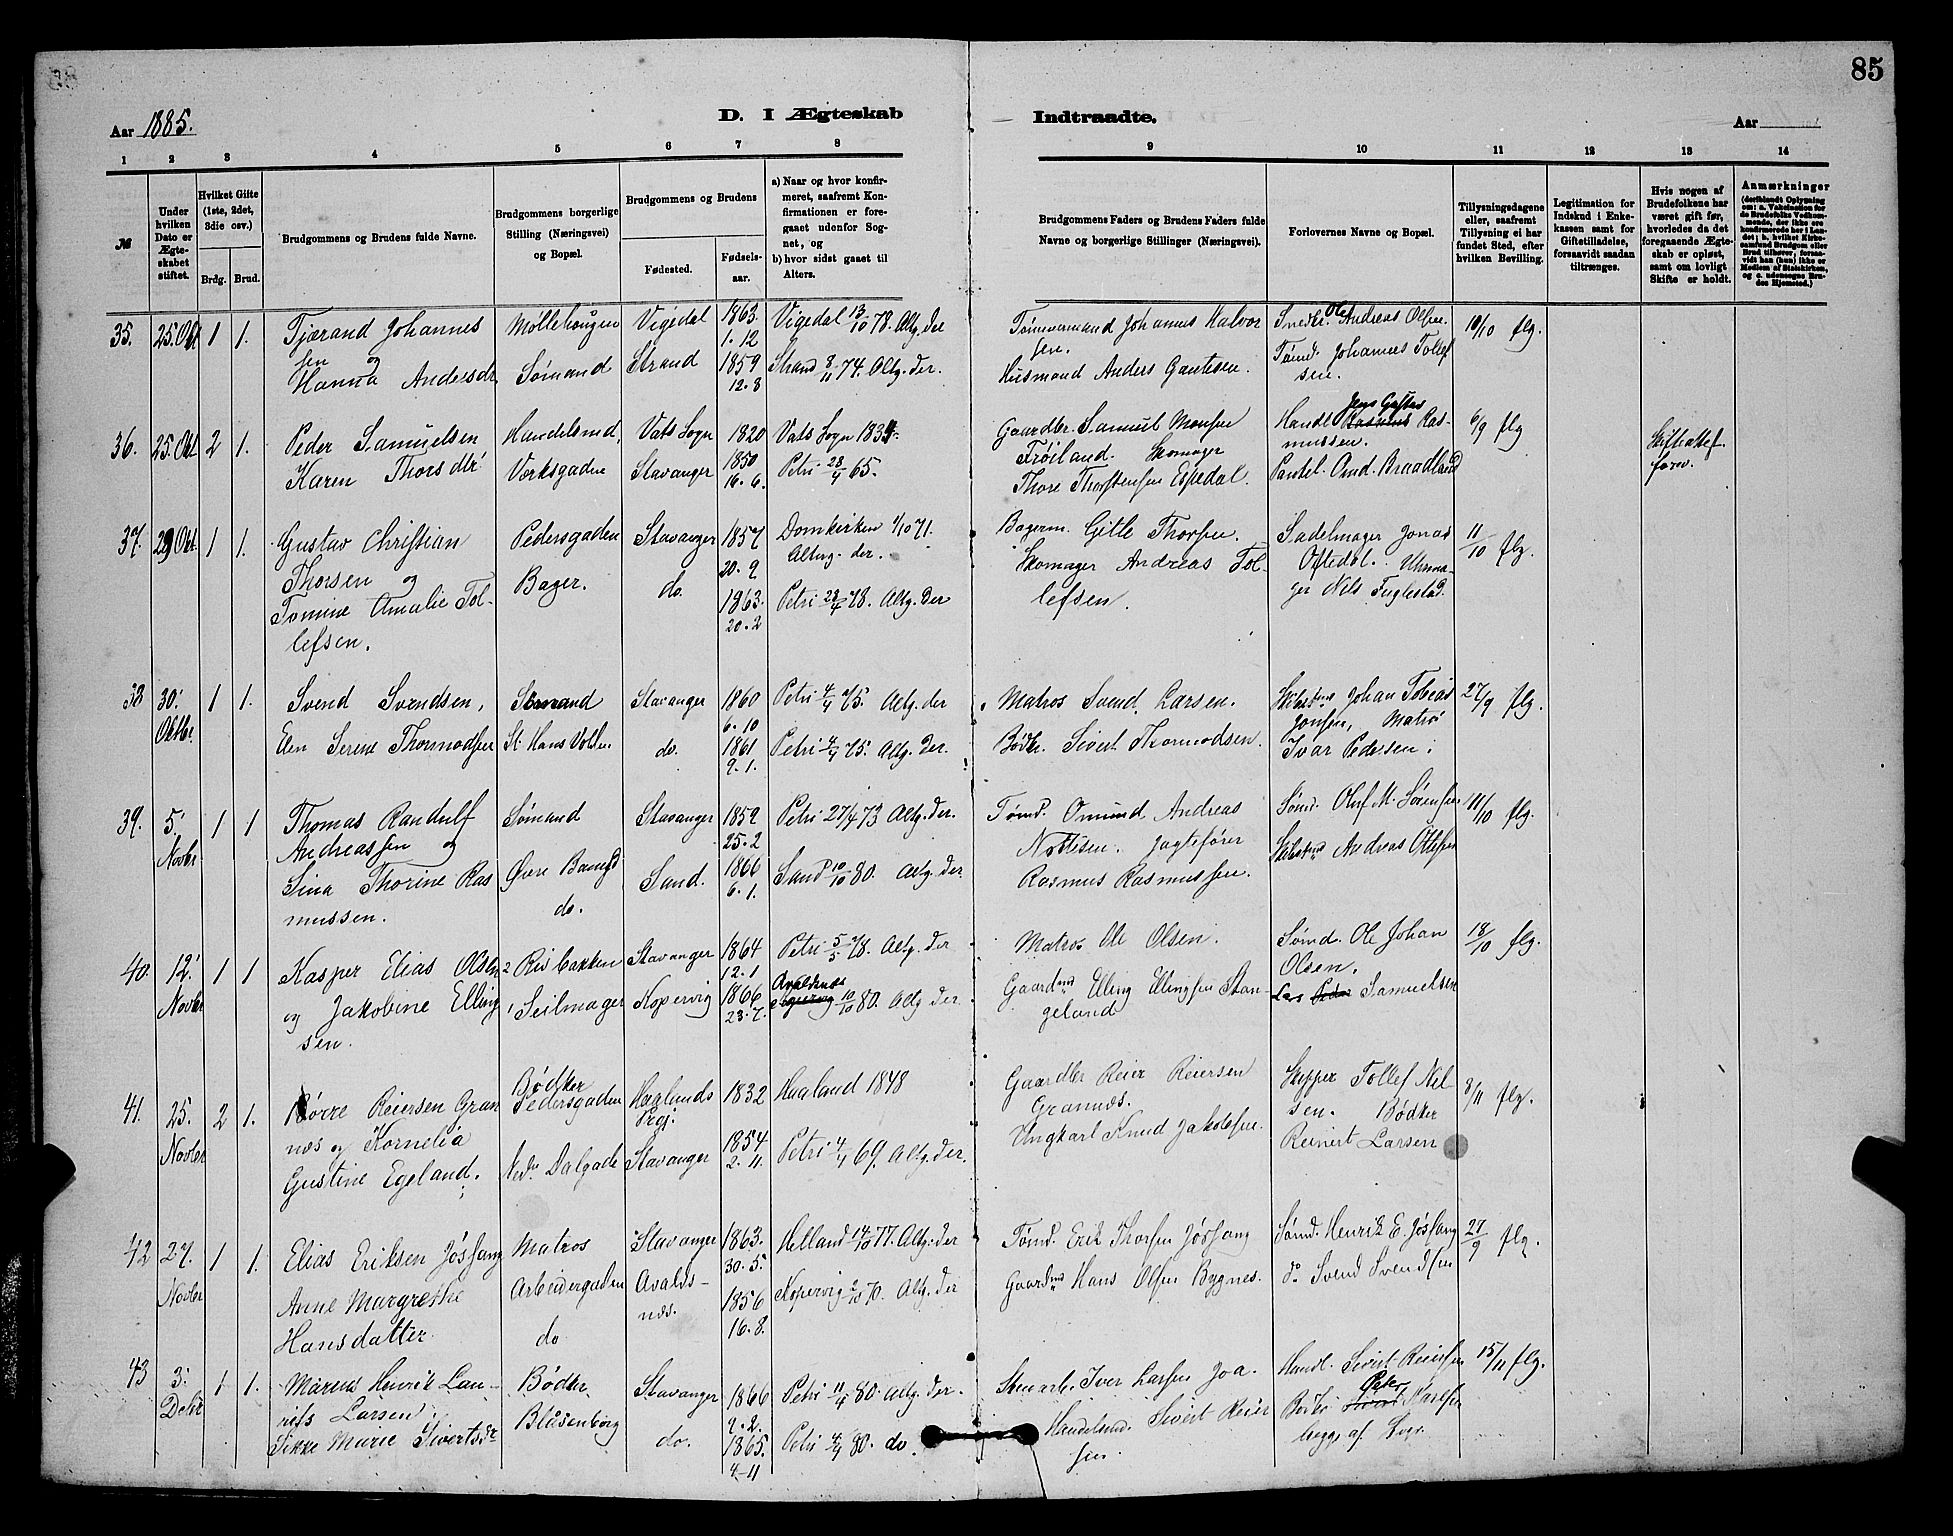 85
Aar 1885.
D. I Ægteskab
Indtraadte.
Aar
1 2 3 4 5 6 7 8
9 10 11 12 13 14
№
Under hvilken Dato er Ægteskabet stiftet.
Hvilket Gifte (1ste, 2det, 3die osv.)
Brdg. Brud.
Brudgommens og Brudens fulde Navne.
Brudgommens borgerlige Stilling (Næringsvei) og Bopæl.
Brudgommens og Brudens
Fødested.
Fødselsaar.
a) Naar og hvor konfirmeret, saafremt Konfirmationen er foregaaet udenfor Sognet, og
b) hvor sidst gaaet til Alters.
Brudgommens Faders og Brudens Faders fulde Navne og borgerlige Stillinger (Næringsvei).
Forlovernes Navne og Bopæl.
Tillysningsdagene eller, saafremt Tillysning ei har fundet Sted, efter hvilken Bevilling.
Legitimation for Indskud i Enkekassen samt for Giftetilladelse, forsaavidt saadan tiltrænges.
Hvis nogen af Brudefolkene har været gift før, hvorledes da det foregaaende Ægteskab er opløst, samt om lovligt Skifte er holdt.
Anmærkninger
35. 25. Okt 1 1.
Tjærand Johannes
sen og
Hanna Andersdr
Møllehougen
Sømand
Vigedal
Strand
1863.
1.12
1859
12.8
Vigedal 13/10 78. Altg. der
Strand 8/11 74. Altg. der.
Tømmermand Johannes Halvor
sen.
Husmand Anders Gautesen.
Snedkr. Ole Andreas Olsen
Tømd. Johannes Tollef
sen.
10/10 flg.
36. 25. Okt 2 1.
Peder Samuelsen
Karen Thorsdtr
Handelsmd,
Verksgaden
Vats Sogn
Stavanger
1820
1850
16.6.
Vats Sogn 1834.
Petri 23/4 65.
Gaardbr. Samuel Monsen
Frøiland. Skomager
Thore Thorstensen Espedal.
Handl. Jens Gustav Rasmus Ras-
mussen.
Omd. Braadland
6/9 flg
Skifteattest
forev.
37. 29 Okt. 1 1.
Gustav Christian
Thorsen og
Tomine Amalie Tol-
lefsen.
Pedersgaden
Bager.
Stavanger
do.
1857
20.9
1863.
20.2
Domkirken 1/10 71.
Altrg. der.
Petri 28/4 78. Altg. der
Bagerm. Gitle Thorsen.
Skomager Andreas Tol-
lefsen.
Sadelmager Jonas
Oftedal. Uhrma-
ger Nils Fuglestad.
11/10 flg.
38 30. Oktbr. 1 1.
Svend Svendsen,
Elen Serene Thormodsen
Sømand
St. Hans Volden.
Stavanger
do.
1860
6.10
1861
9.1.
Petri 4/4 75. Altg. der
Petri 4/4 75. Altg. der.
Matros Svend Larsen.
Bødkr. Sivert Thormodsen.
Johan Tobias
Jonsen, Matros
Ivar Pedersen.
27/9 flg.
39. 5. Novbr 1 1
Thomas Randulf
Andreassen og
Sina Thorine Ras
mussen.
Sømand
Øvre Bangd
do.
Stavanger
Sand.
1859
25.2
1866
6.1.
Petri 27/4 73 Altg. der.
Sand 10/10 80. Altg. der.
Tømd. Omund Andreas
Jagtefører
Rasmus Rasmussen.
Sømd. Oluf M. Sørensen
Andreas Ottesen
11/10 flg.
40. 12. Novbr 1 1
Kasper Elias Olsen
og Jakobine Elling
sen.
2 Risbakken
1 Seilmager
Stavanger
Kopervig
1864
12.1
1866
23.7.
Petri 5/5 78. Altg. der
Avaldsnes Kopervig 10/10 80. Altg der
Matros Ole Olsen.
Gaardmd Elling Ellingsen Stan-
geland
Sømd. Ole Johan
Olsen.
Lars Peder Samuelsen
18/10 flg.
41. 25. Novbr 2 1.
Børre Reiersen Gran
næs og Kornelia
Gustine Egeland.
Bødker
Pedersgaden
Nedr Dalgade
Haglands
Prgj.
Stavanger
1832
1854
2.11.
Haaland 1848
Petri 4/4 69. Altg. der.
Gaardbr Reier Reiersen
Grannæs.
Ungkarl Knud Jakobsen.
Skipper Tollef Nil-
sen. Bødker
Reinert Larsen
8/11 flg.
42 27. Novbr 1 1.
Elias Eriksen Jøssang
Anne Margrethe
Hansdatter
Matros
Arbeidergaden
do
Stavanger
Avalds-
næs.
1863.
30.5.
1856
16.8.
Helland 14/10 77. Altg. der
Kopervig 2/10 70. Altg. der
Tømd. Erik Thorsen Jøssang
Gaardmd Hans Olsen Bygnes.
Sømd. Henrik E. Jøssang
do Svend Svendsen
27/9 flg.
43 3. Debr 1 1.
Marius Henrik Lau-
rits Larsen
Sikke Marie Sivertsdr
Bødker
Blåsenborg
Stavanger
do.
1866
9.2.
1865.
4-11
Petri 11/4 80. Altg. der.
Petri 4/4 80. do.
Stenarb. Iver Larsen Joa.
Handelsmd. Sivert Reier
sen
Handl. Sivert Reiersen
Bødkr. Peter Sivert Karlsen
begge af Svgr.
15/11 flg.